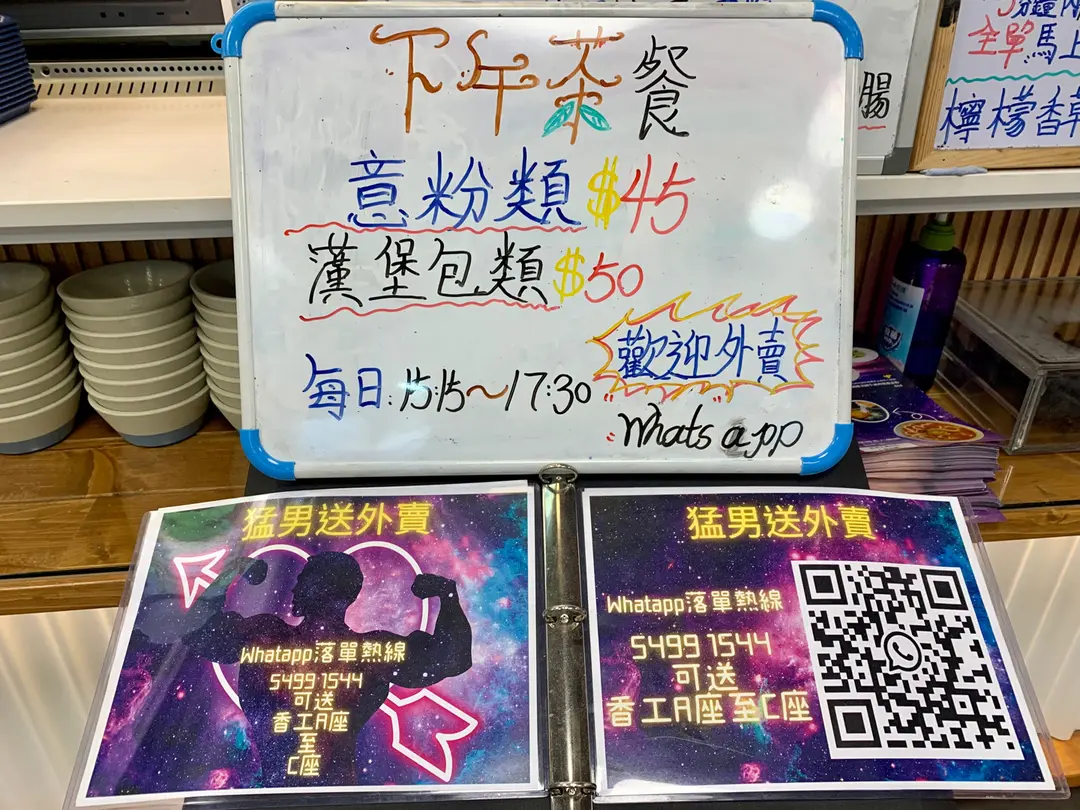 下午茶餐
意粉類$45
漢堡包類$50
歡迎外賣
每日:15:15~17:30
Whats app
腸
全單馬上
檸檬香草
猛男送外賣
Whatapp落單熱線
5499 1544
可送
香工A座
至
C座
猛男送外賣
Whatapp落單熱線
5499 1544
可送
香工A座至C座